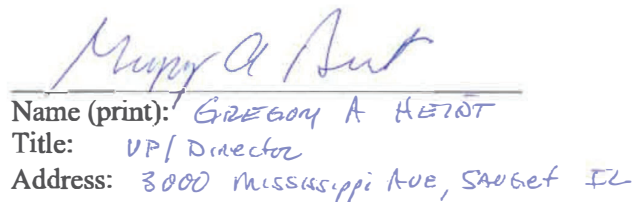 Name (print): GREGORY A
Title: VP/Director
Address: 3000 Mississippi Ave, SAUGET IL